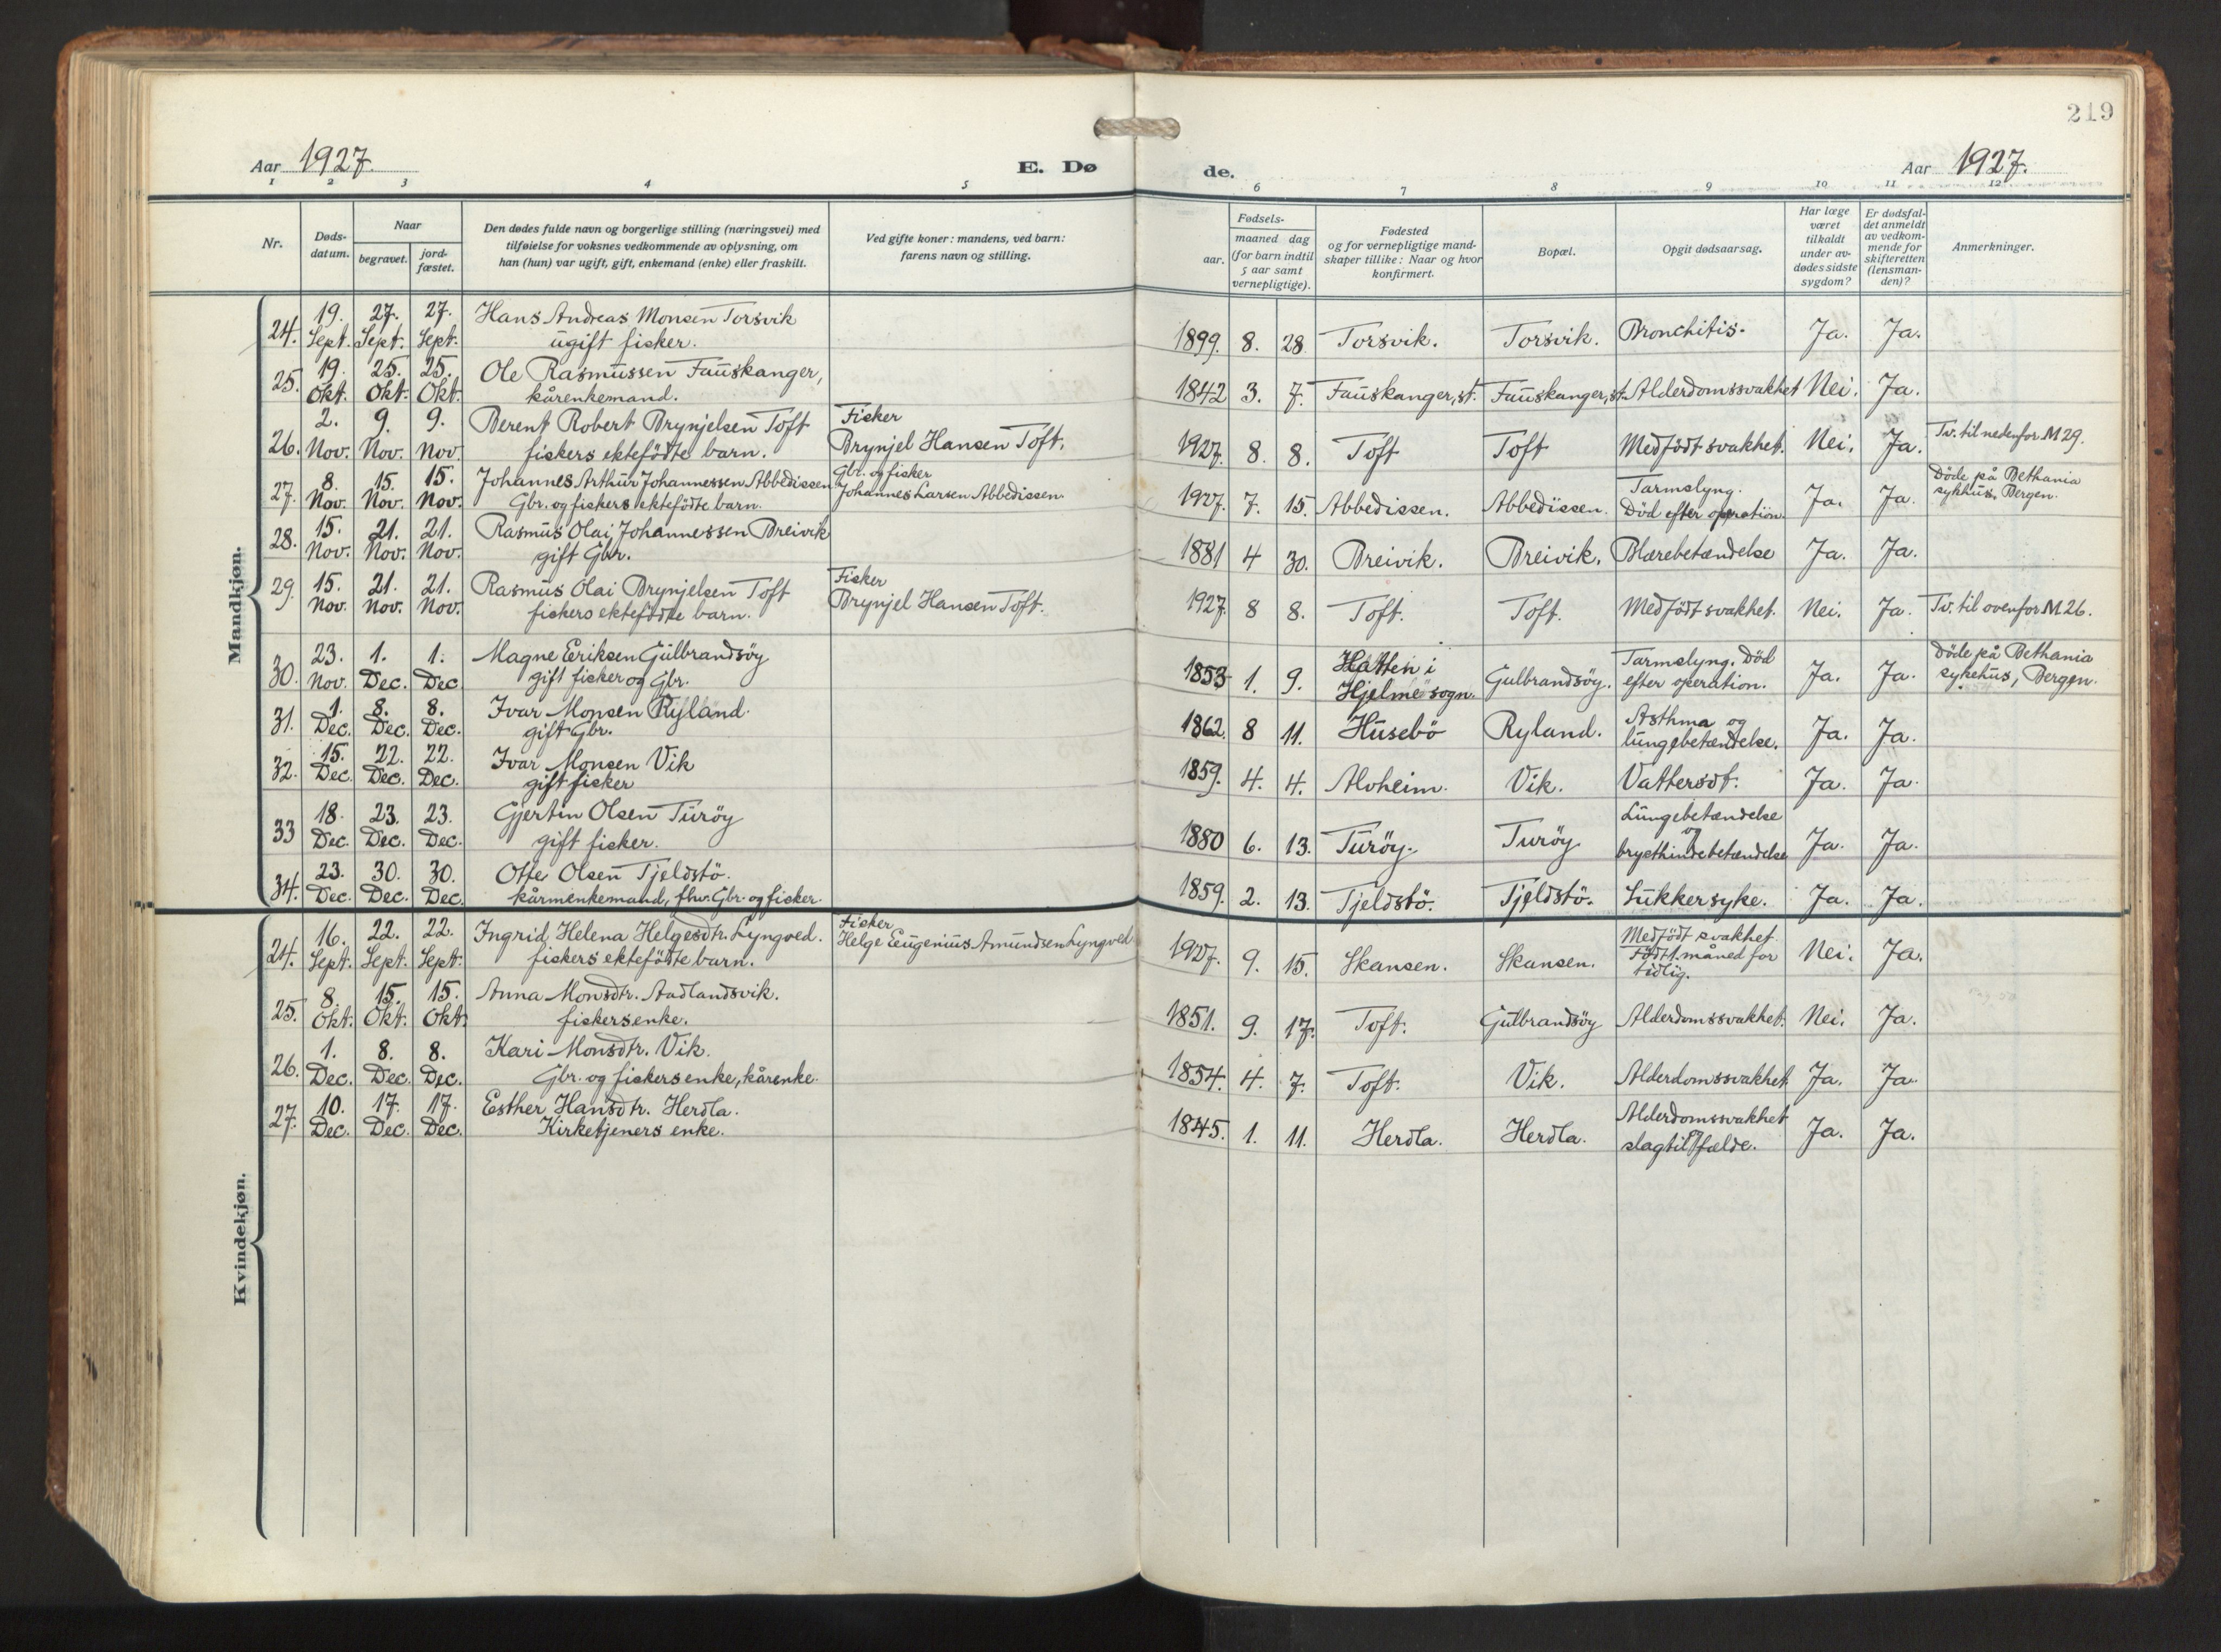 219
Aar 1927.
E. Dø
de.
Aar 1927.
1 2 3 4 5 6 7 8 9 10 11 12
Nr.
Døds-
datum.
Naar
begravet.
jord-
fæstet.
Den dødes fulde navn og borgerlige stilling (næringsvei) med
tilføielse for voksnes vedkommende av oplysning, om
han (hun) var ugift, gift, enkemand (enke) eller fraskilt.
Ved gifte koner: mandens, ved barn:
farens navn og stilling.
Fødsels-
aar.
maaned dag
(for barn indtil
5 aar samt
vernepligtige).
Fødested
og for vernepligtige mand-
skaper tillike: Naar og hvor
konfirmert.
Bopæl.
Opgit dødsaarsag.
Har læge
været
tilkaldt
under av-
dødes sidste
sygdom?
Er dødsfal-
det anmeldt
av vedkom-
mende for
skifteretten
(lensman-
den)?
Anmerkninger.
Mandkjøn.
24. 19. Sept. 27. Sept. 27. Sept. Hans Andreas Monsen Torsvik
ugift fisker.
1899. 8. 28 Torsvik. Torsvik. Bronchitis. Ja. Ja.
25. 19. Okt. 25. Okt. 25. Okt. Ole Rasmussen Fauskanger,
kårenkemand.
1842 3. 7. Fauskanger, st. Fauskanger, st. Alderdomssvakhet Nei. Ja.
26. 2. Nov. 9. Nov. 9. Nov. Berent Robert Brynjelsen Toft
fiskers ektefödte barn.
Fisker
Brynjel Hansen Toft.
1927. 8. 8. Toft Toft Medfödt svakhet. Nei. Ja. Tv. til nedenfor M 29.
27. 8. Nov. 15. Nov. 15. Nov. Johannes Arthur Johannessen Abbedissen
Gbr. og fiskers ektefödte barn.
Gbr. og fisker
Johannes Larsen Abbedissen.
1927. 7. 15. Abbedissen. Abbedissen. Tarmslyng.
Död efter operation. Ja. Ja. Döde på Bethania
sykhus, Bergen.
28. 15. Nov. 21. Nov. 21. Nov. Rasmus Olai Johannessen Breivik
gift Gbr.
1881 4 30. Breivik. Breivik. Blærebetændelse Ja. Ja.
29. 15. Nov. 21. Nov. 21. Nov. Rasmus Olai Brynjelsen Toft
fiskers ektefödte barn.
Fisker
Brynjel Hansen Toft.
1927. 8 8. Toft. Toft. Medfödt svakhet. Nei. Ja. Tv. til ovenfor M 26.
30. 23. Nov. 1. Dec. 1. Dec. Magne Eriksen Gulbrandsöy
gift fisker og Gbr.
1853 1. 9. Hatten i
Hjelme sogn. Gulbrandsöy. Tarmslyng. Död
efter operation. Ja. Ja. Döde på Bethania
sykehus, Bergen.
31. 1. Dec. 8. Dec. 8. Dec. Ivar Monsen Ryland.
gift Gbr.
1862. 8 11. Husebö Ryland. Asthma og
lungebetændelse. Ja. Ja.
32. 15. Dec. 22. Dec. 22. Dec. Ivar Monsen Vik
gift fisker
1859. 4. 4. Alvheim. Vik. Vattersot. Ja. Ja.
33 18. Dec. 23. Dec. 23. Dec. Gjertin Olsen Turöy
gift fisker.
1880 6. 13. Turöy. Turöy Lungebetændelse
og
brysthindebetændelse Ja. Ja.
34. 23. Dec. 30. Dec. 30. Dec. Otte Olsen Tjeldstö.
kårmenkemand, fhv. Gbr. og fisker.
1859. 2. 13. Tjeldstö. Tjeldstö. Sukkersyke. Ja. Ja.
Kvindekjøn.
24. 16. Sept. 22. Sept. 22. Sept. Ingrid Helena Helgesdtr. Lyngved.
fiskers ektefödte barn.
Fisker
Helge Eugenius Amundsen Lyngved
1927. 9. 15. Skansen. Skansen. Medfödt svakhet.
Födt 1 måned for
tidlig. Nei. Ja.
25. 8. Okt. 15. Okt. 15. Okt. Anna Monsdtr. Aadlandsvik.
fiskersenke.
1851. 9. 17. Toft. Gulbrandsöy Alderdomssvakhet. Nei. Ja.
26. 1. Dec. 8. Dec. 8. Dec. Kari Monsdtr. Vik.
Gbr. og fiskersenke, kårenke.
1854. 4. 7. Toft. Vik. Alderdomssvakhet Ja. Ja.
27. 10. Dec. 17. Dec. 17. Dec. Esther Hansdtr. Herdla.
Kirketjeners enke.
1845. 1. 11. Herdla. Herdla. Alderdomssvakhet
og
slagtilfælde. Ja. Ja.